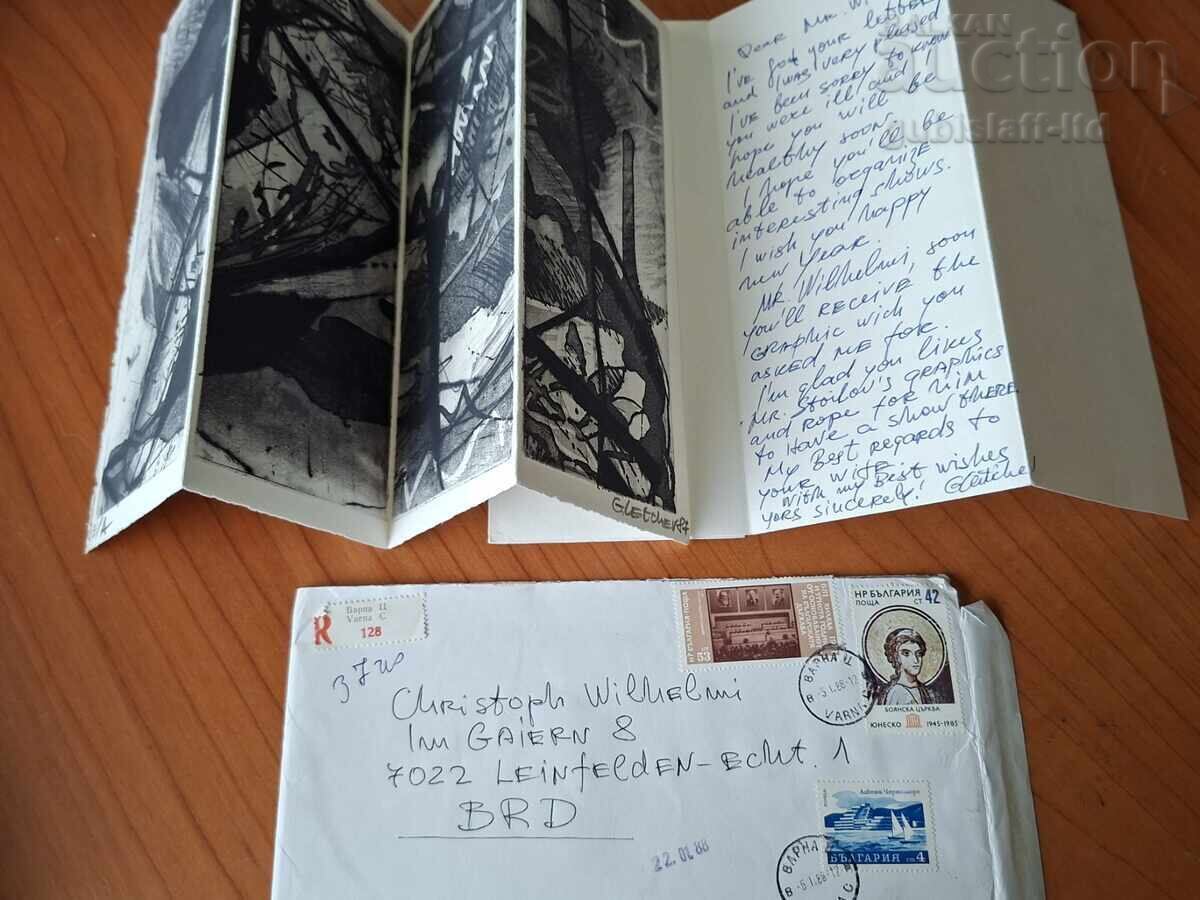 BALKAN
auction
gubislaff-ltd
Dear Mr. Wi
I've got your letter
and I was very pleased
I've been sorry to know
you were ill and
hope you will be
healthy soon.
I hope you'll be
able to organize
interesting shows.
I wish you happy
new year.
Mr. Wilhelmi, soon
you'll receive the
graphic wich you
asked me for.
I'm glad you likes
Mr. Stoilov's graphics
and rope for him
to have a show there
My Best regards to
your wife
With my Best wishes
yors sincerely! Gletcher
Gletcher 87
R
Варна Ц
Varna C
128
Christoph Wilhelmi
Im Gaiern 8
7022 Leinfelden-Echt. 1
BRD
22.01.88
НР БЪЛГАРИЯ ПОЩА
53
НР БЪЛГАРИЯ
ПОЩА СТ 42
БОЯНСКА ЦЪРКВА
ЮНЕСКО 1945-1985
ВАРНА Ц
-5.1.88-12
VARNA
БЪЛГАРИЯ 4
ВАРНА Ц
-5.1.88-12